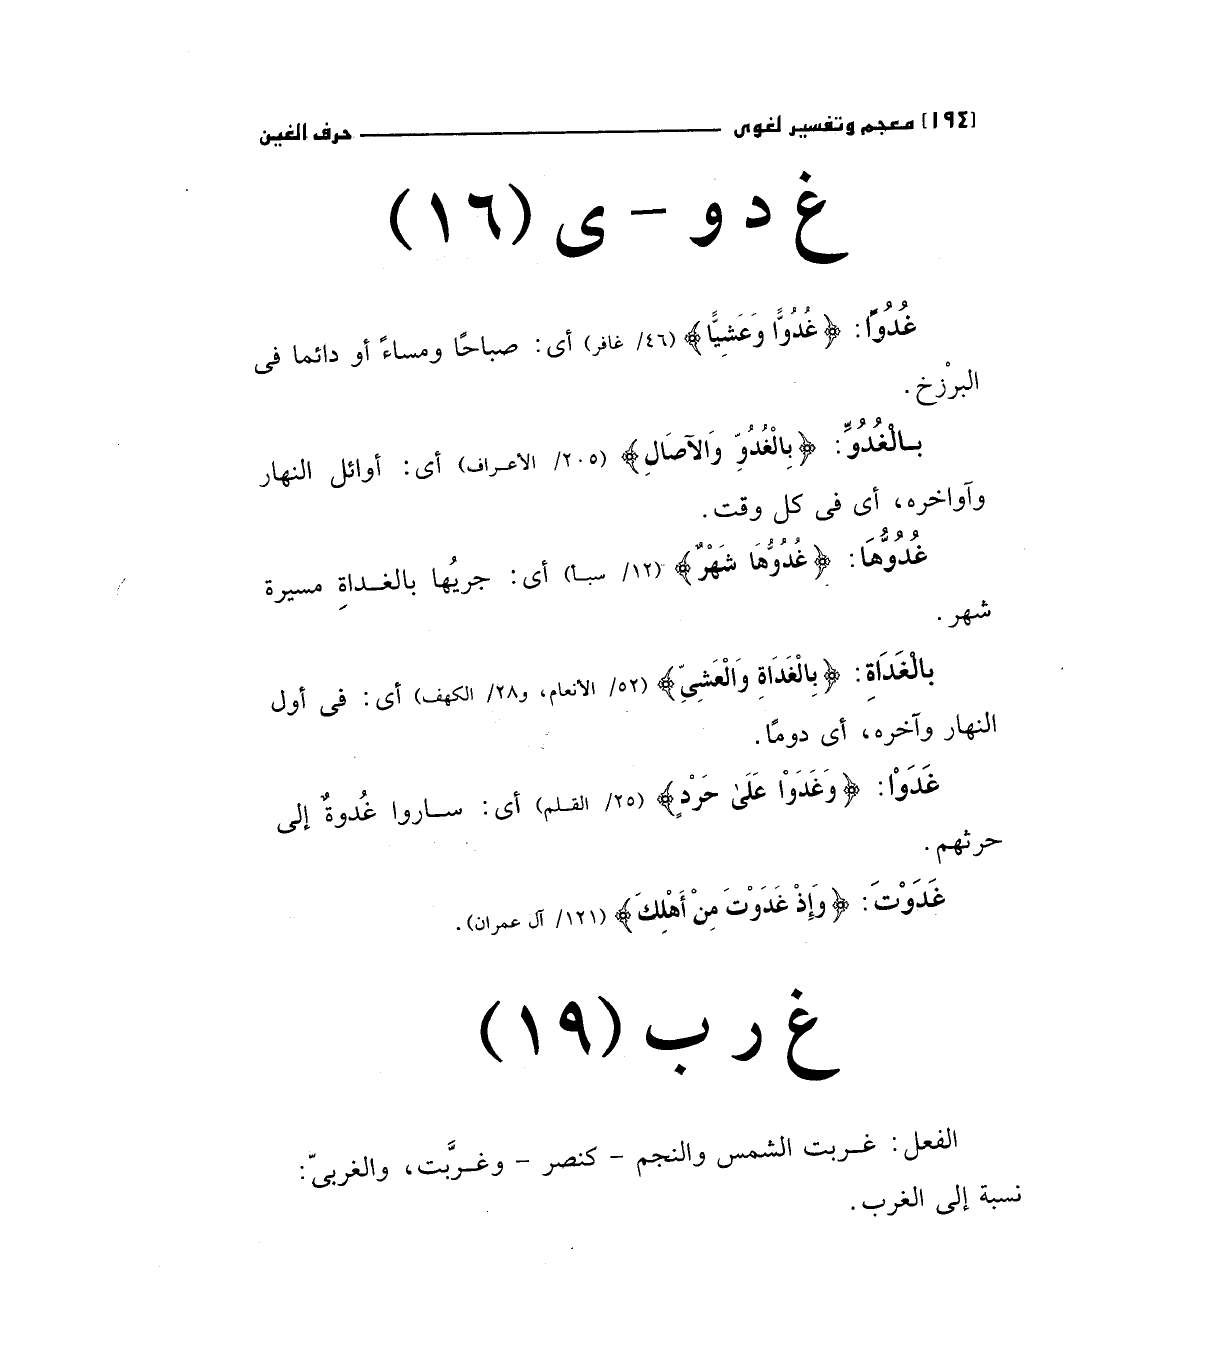 [١٩٤] معجم وتفسير لغوى ـــــــــ حرف الغين
غ د و - ى (١٦)
غُدُوًّا: ﴿غُدُوًّا وَعَشِيًّا﴾ (٤٦/ غافر) أى: صباحًا ومساءً أو دائما فى
البرْزخ.
بـالْغُدُوِّ: ﴿بِالْغُدُوِّ وَالآصَالِ﴾ (٢٠٥/ الأعـراف) أى: أوائل النهار
وآواخره، أى فى كل وقت.
غُدُوُّهَا: ﴿غُدُوُّهَا شَهْرٌ﴾ (١٢/ سبـأ) أى: جريُها بالغـداةِ مسيرة
شهر.
بِالْغَدَاةِ: ﴿بِالْغَدَاةِ وَالْعَشِيِّ﴾ (٥٢/ الأنعام، و٢٨/ الكهف) أى: فى أول
النهار وآخره، أى دومًا.
غَدَوْا: ﴿وَغَدَوْا عَلَىٰ حَرْدٍ﴾ (٢٥/ القـلم) أى: ســاروا غُدوةٌ إلى
حرثهم.
غَدَوْتَ: ﴿وَإِذْ غَدَوْتَ مِنْ أَهْلِكَ﴾ (١٢١/ آل عمران).
غ ر ب (١٩)
الفعل: غـربت الشمس والنجم - كنصر - وغـرَّبت، والغربىّ:
نسبة إلى الغرب.